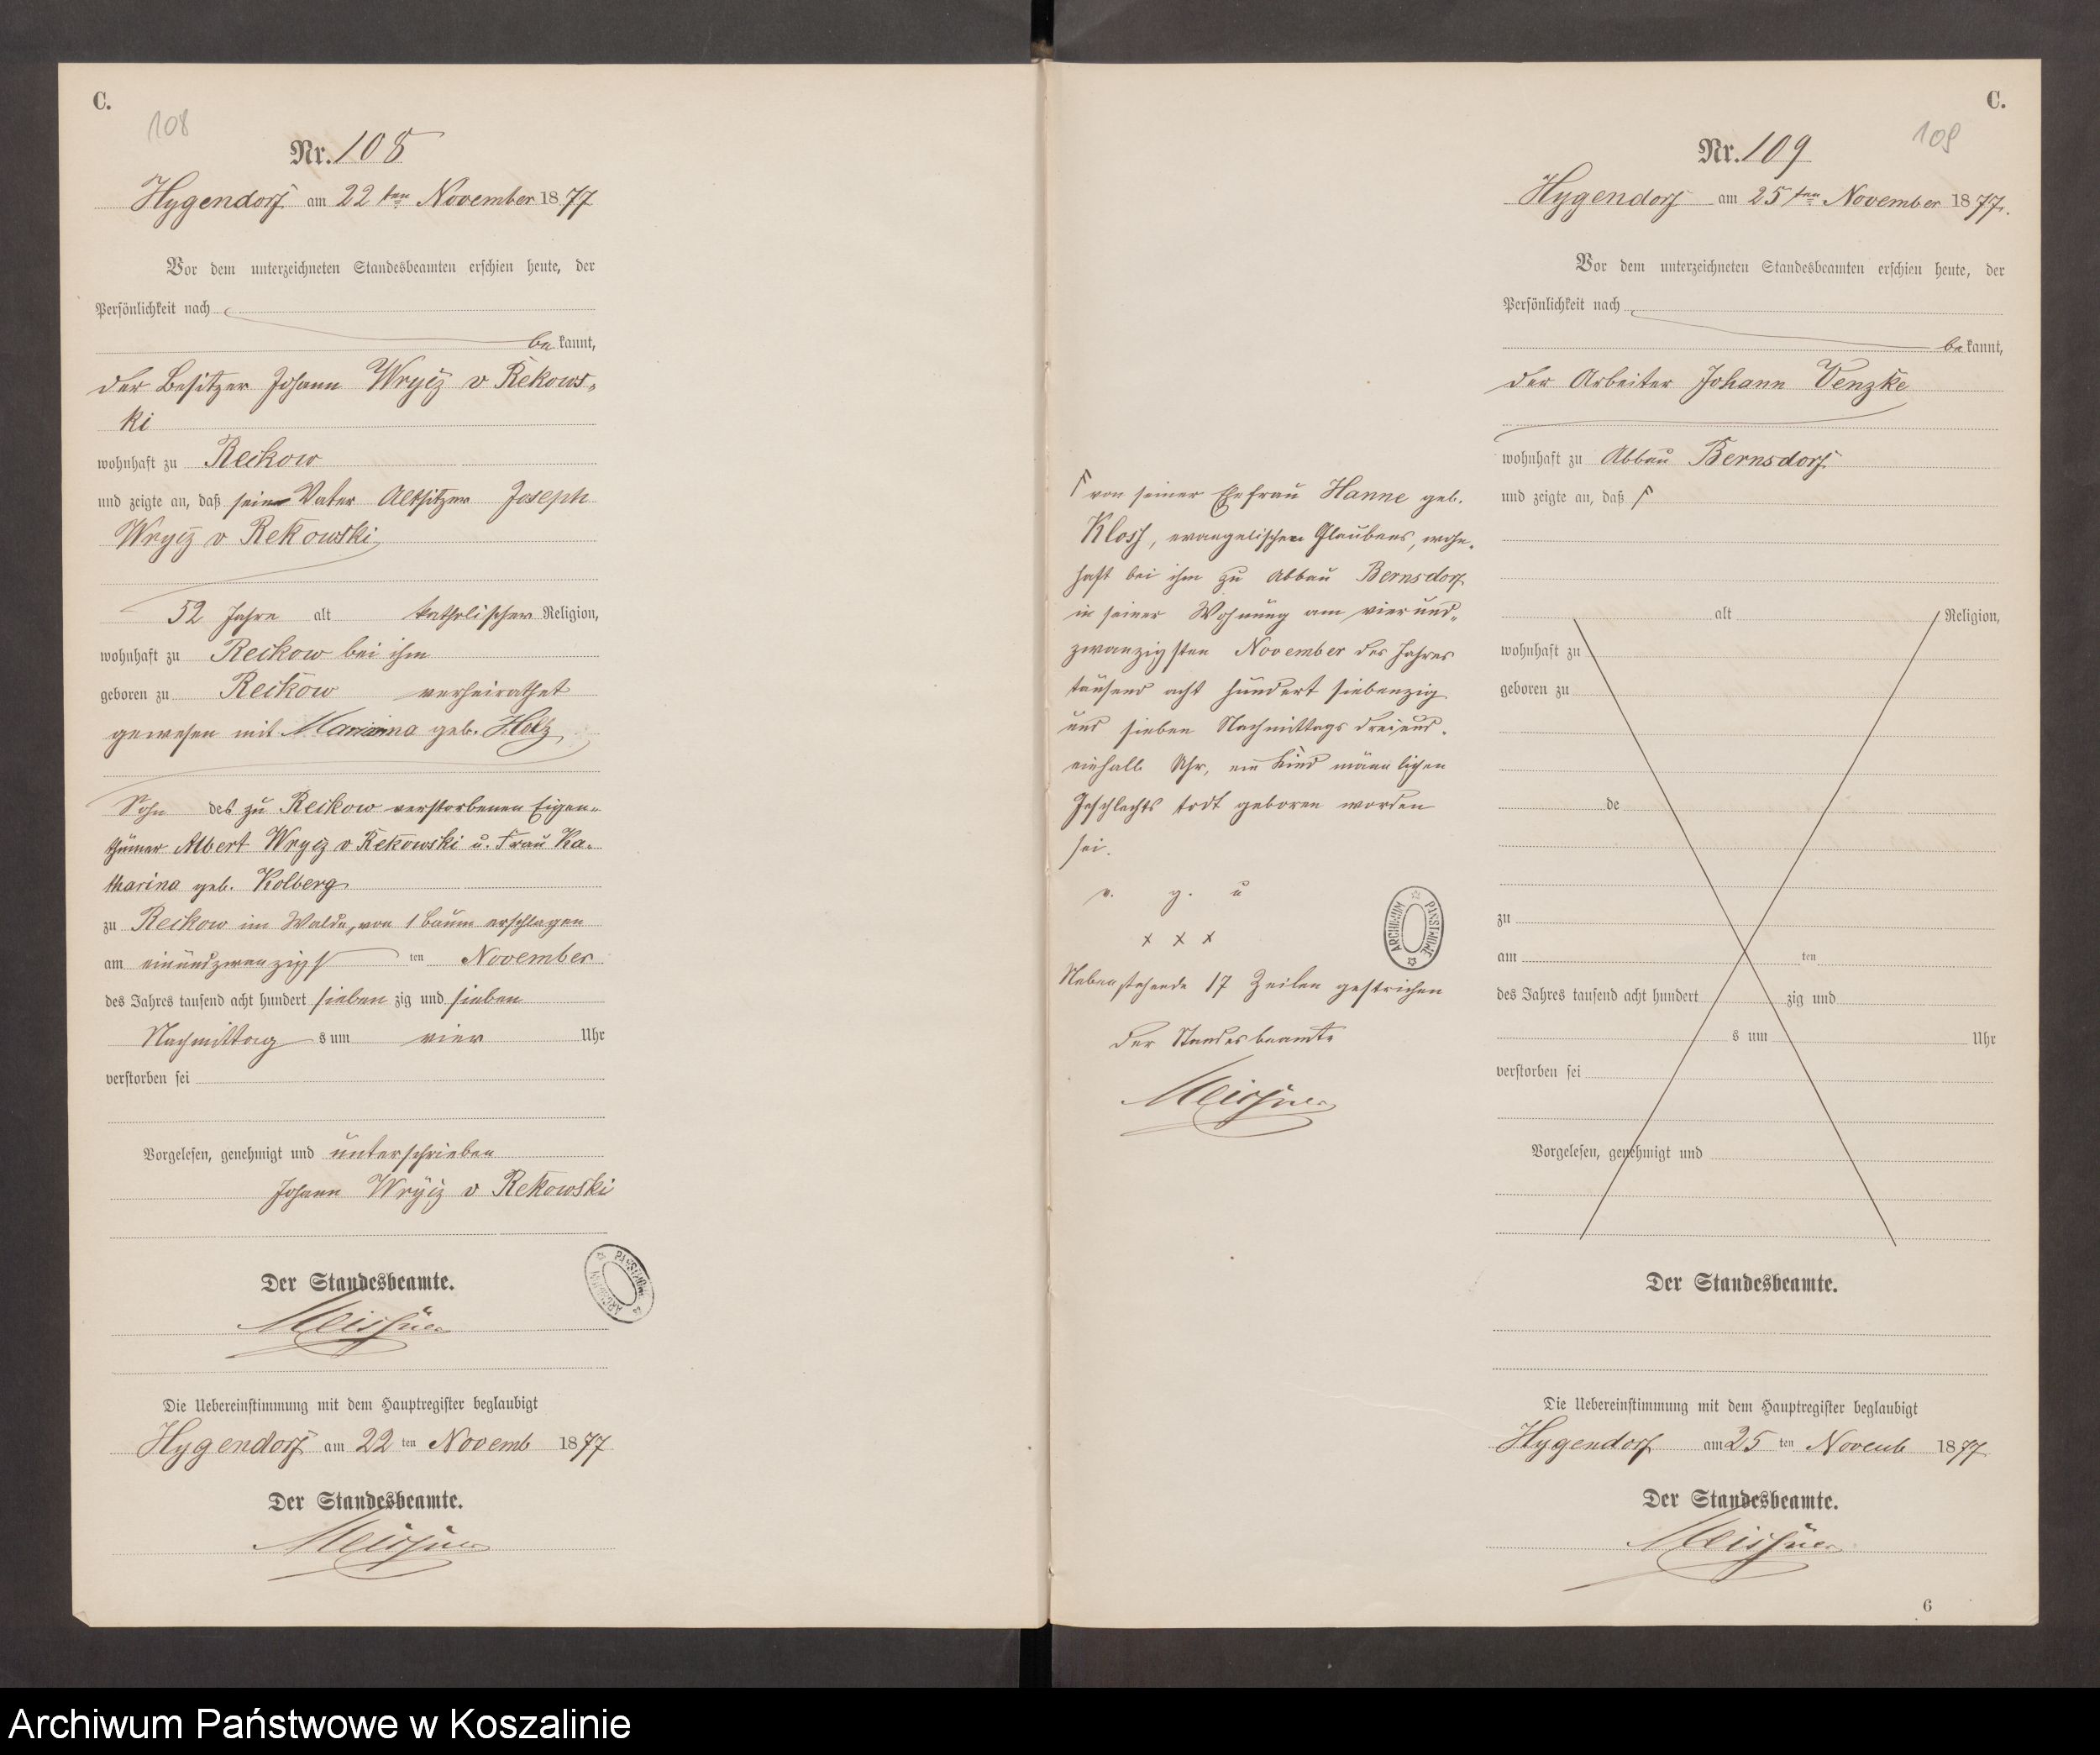 C.
108
Nr. 108
Hygendorf am 22 ten November 1877
Vor dem unterzeichneten Standesbeamten erschien heute, der
Persönlichkeit nach
bekannt,
der Besitzer Johann Wrycz v Rekows-
ki
wohnhaft zu Reckow
und zeigte an, daß sein Vater Altsitzer Joseph
Wrycz v Rekowski
52 Jahre alt katholischer Religion,
wohnhaft zu Reckow bei ihm
geboren zu Reckow verheirathet
gewesen mit Marianna geb. Holtz
Sohn des zu Reckow verstorbenen Eigen-
thümer Albert Wrycz v Rekowski u. Frau Ka-
tharina geb. Kolberg
zu Reckow im Walde, von 1 Baum erschlagen
am einundzwanzigsten November
des Jahres tausend acht hundert siebenzig und sieben
Nachmittags um vier Uhr
verstorben sei
Vorgelesen, genehmigt und unterschrieben
Johann Wrycz v Rekowski
Der Standesbeamte.
Meissner
ARCHIWUM PAŃSTWOWE
Die Uebereinstimmung mit dem Hauptregister beglaubigt
Hygendorf am 22 ten Novemb 1877
Der Standesbeamte.
Meissner
C.
109
Nr. 109
Hygendorf am 25 ten November 1877.
Vor dem unterzeichneten Standesbeamten erschien heute, der
Persönlichkeit nach
bekannt,
der Arbeiter Johann Venzke
wohnhaft zu Abbau Bernsdorf
und zeigte an, daß
von seiner Ehefrau Hanne geb.
Kloss, evangelischen Glaubens, wohn-
haft bei ihm zu Abbau Bernsdorf
in seiner Wohnung am vierund-
zwanzigsten November des Jahres
tausend acht hundert siebenzig
und sieben Nachmittags dreiund-
einhalb Uhr, ein Kind männlichen
Geschlechts todt geboren worden
sei.
v. g. u
x x x
Nebenstehende 17 Zeilen gestrichen
Der Standesbeamte
Meissner
ARCHIWUM PAŃSTWOWE
alt Religion,
wohnhaft zu
geboren zu
de
zu
am ten
des Jahres tausend acht hundert zig und
s um Uhr
verstorben sei
Vorgelesen, genehmigt und
Der Standesbeamte.
Die Uebereinstimmung mit dem Hauptregister beglaubigt
Hygendorf am 25 ten Novemb 1877
Der Standesbeamte.
Meissner
6
Archiwum Państwowe w Koszalinie